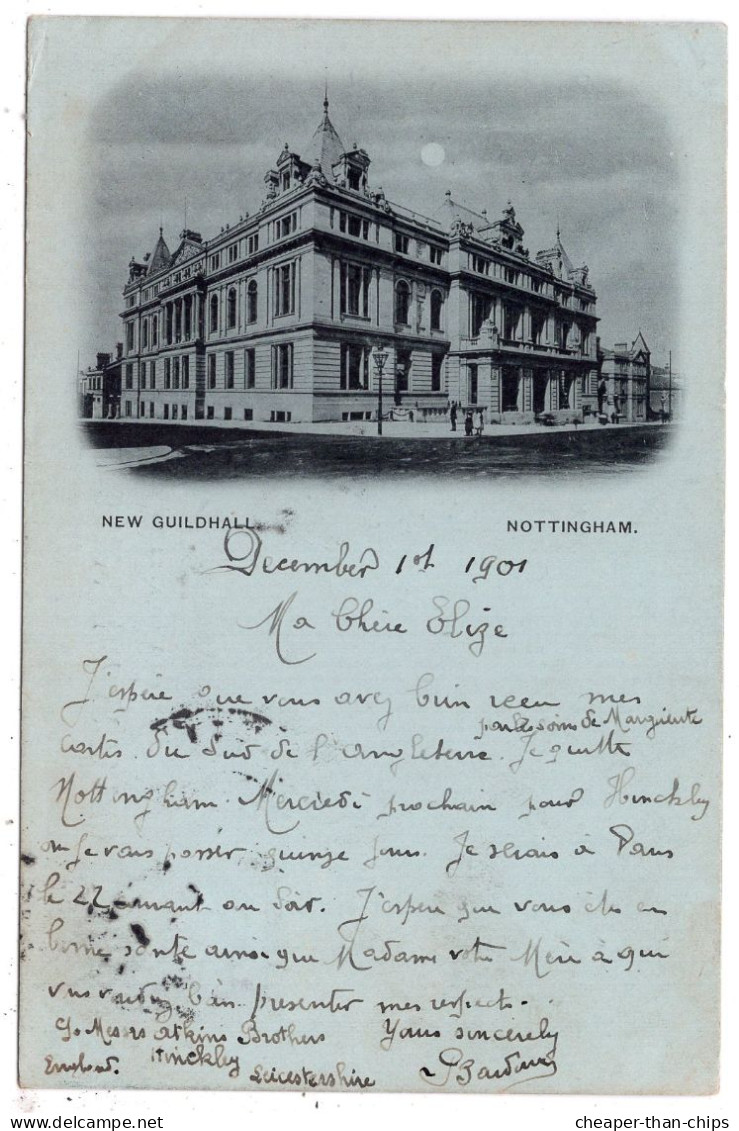 NEW GUILDHALL
NOTTINGHAM.
December 1st 1901
Ma Chère Elize
J'espère que vous avez bien reçu mes
par les soins de Marguerite
cartes du Sud de l'Angleterre. Je quitte
Nottingham Mercredi prochain pour Hinckley
ou je vais passer quinze jours. Je serais à Paris
le 22 courant au Soir. J'espère que vous êtes en
bonne santé ainsi que Madame votre Mère à qui
vous voudrez bien presenter mes respects.
C/o Messrs Atkins Brothers
Yours sincerely
Hinckley
England.
Leicestershire
cheaper-than-chips